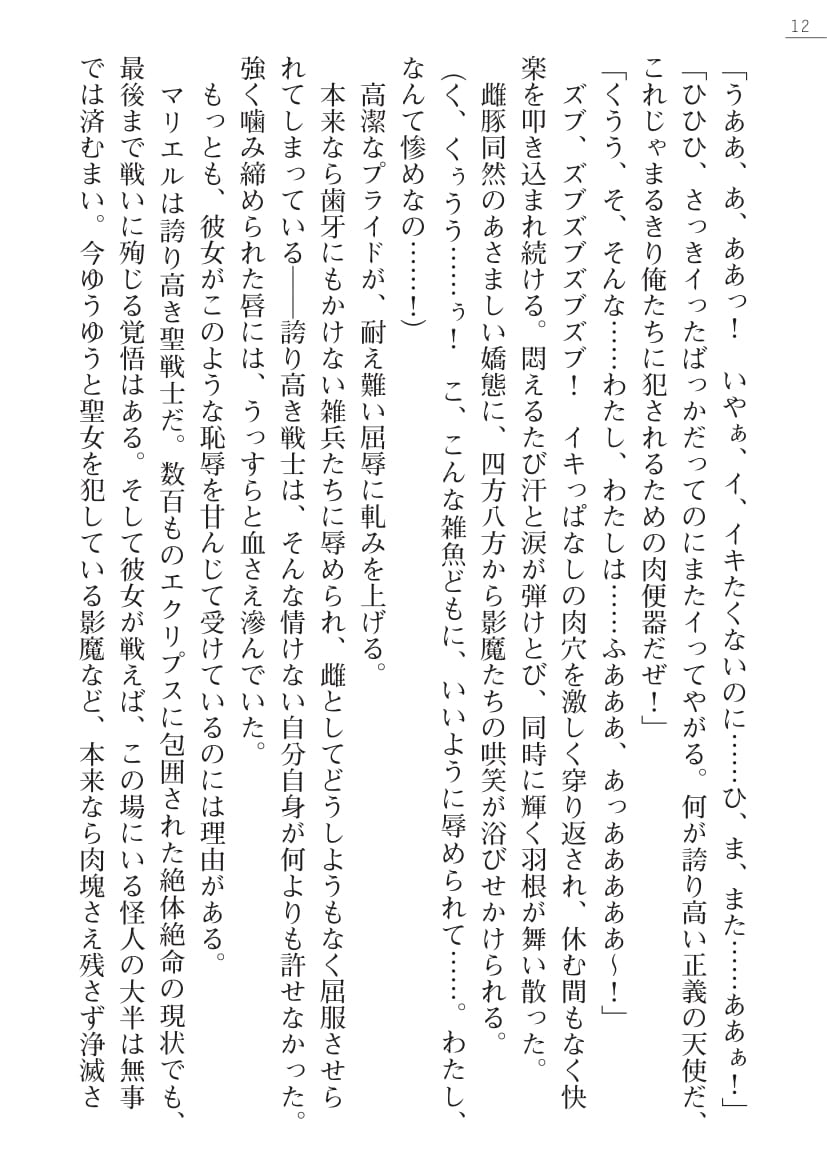 12
「うああ、あ、ああっ！　いやぁ、イ、イキたくないのに……ひ、ま、また……ああぁ！」
「ひひひ、さっきイったばっかだってのにまたイってやがる。何が誇り高い正義の天使だ、
これじゃまるきり俺たちに犯されるための肉便器だぜ！」
「くうう、そ、そんな……わたし、わたしは……ふあああ、あっああああぁ～！」
　ズブ、ズブズブズブズブ！　イキっぱなしの肉穴を激しく穿り返され、休む間もなく快
楽を叩き込まれ続ける。悶えるたび汗と涙が弾けとび、同時に輝く羽根が舞い散った。
　雌豚同然のあさましい嬌態に、四方八方から影魔たちの哄笑が浴びせかけられる。
（く、くぅうう……ぅ！　こ、こんな雑魚どもに、いいように辱められて……。わたし、
なんて惨めなの……！）
　高潔なプライドが、耐え難い屈辱に軋みを上げる。
　本来なら歯牙にもかけない雑兵たちに辱められ、雌としてどうしようもなく屈服させら
れてしまっている――誇り高き戦士は、そんな情けない自分自身が何よりも許せなかった。
強く噛み締められた唇には、うっすらと血さえ滲んでいた。
　もっとも、彼女がこのような恥辱を甘んじて受けているのには理由がある。
　マリエルは誇り高き聖戦士だ。数百ものエクリプスに包囲された絶体絶命の現状でも、
最後まで戦いに殉じる覚悟はある。そして彼女が戦えば、この場にいる怪人の大半は無事
では済むまい。今ゆうゆうと聖女を犯している影魔など、本来なら肉塊さえ残さず浄滅さ